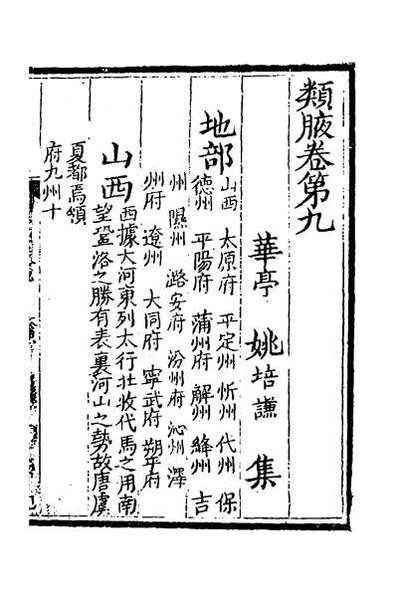 類腋卷第九
華亭 姚培謙 集
地部
山西 太原府 平定州 忻州 代州 保
德州 平陽府 蒲州府 解州 絳州 吉
州 隰州 潞安府 汾州府 沁州 澤
州府 遼州 大同府 寧武府 朔平府
山西
西據大河東列太行壯收代馬之用南
望鞏洛之勝有表裏河山之勢故唐虞
夏都焉領
府九州十